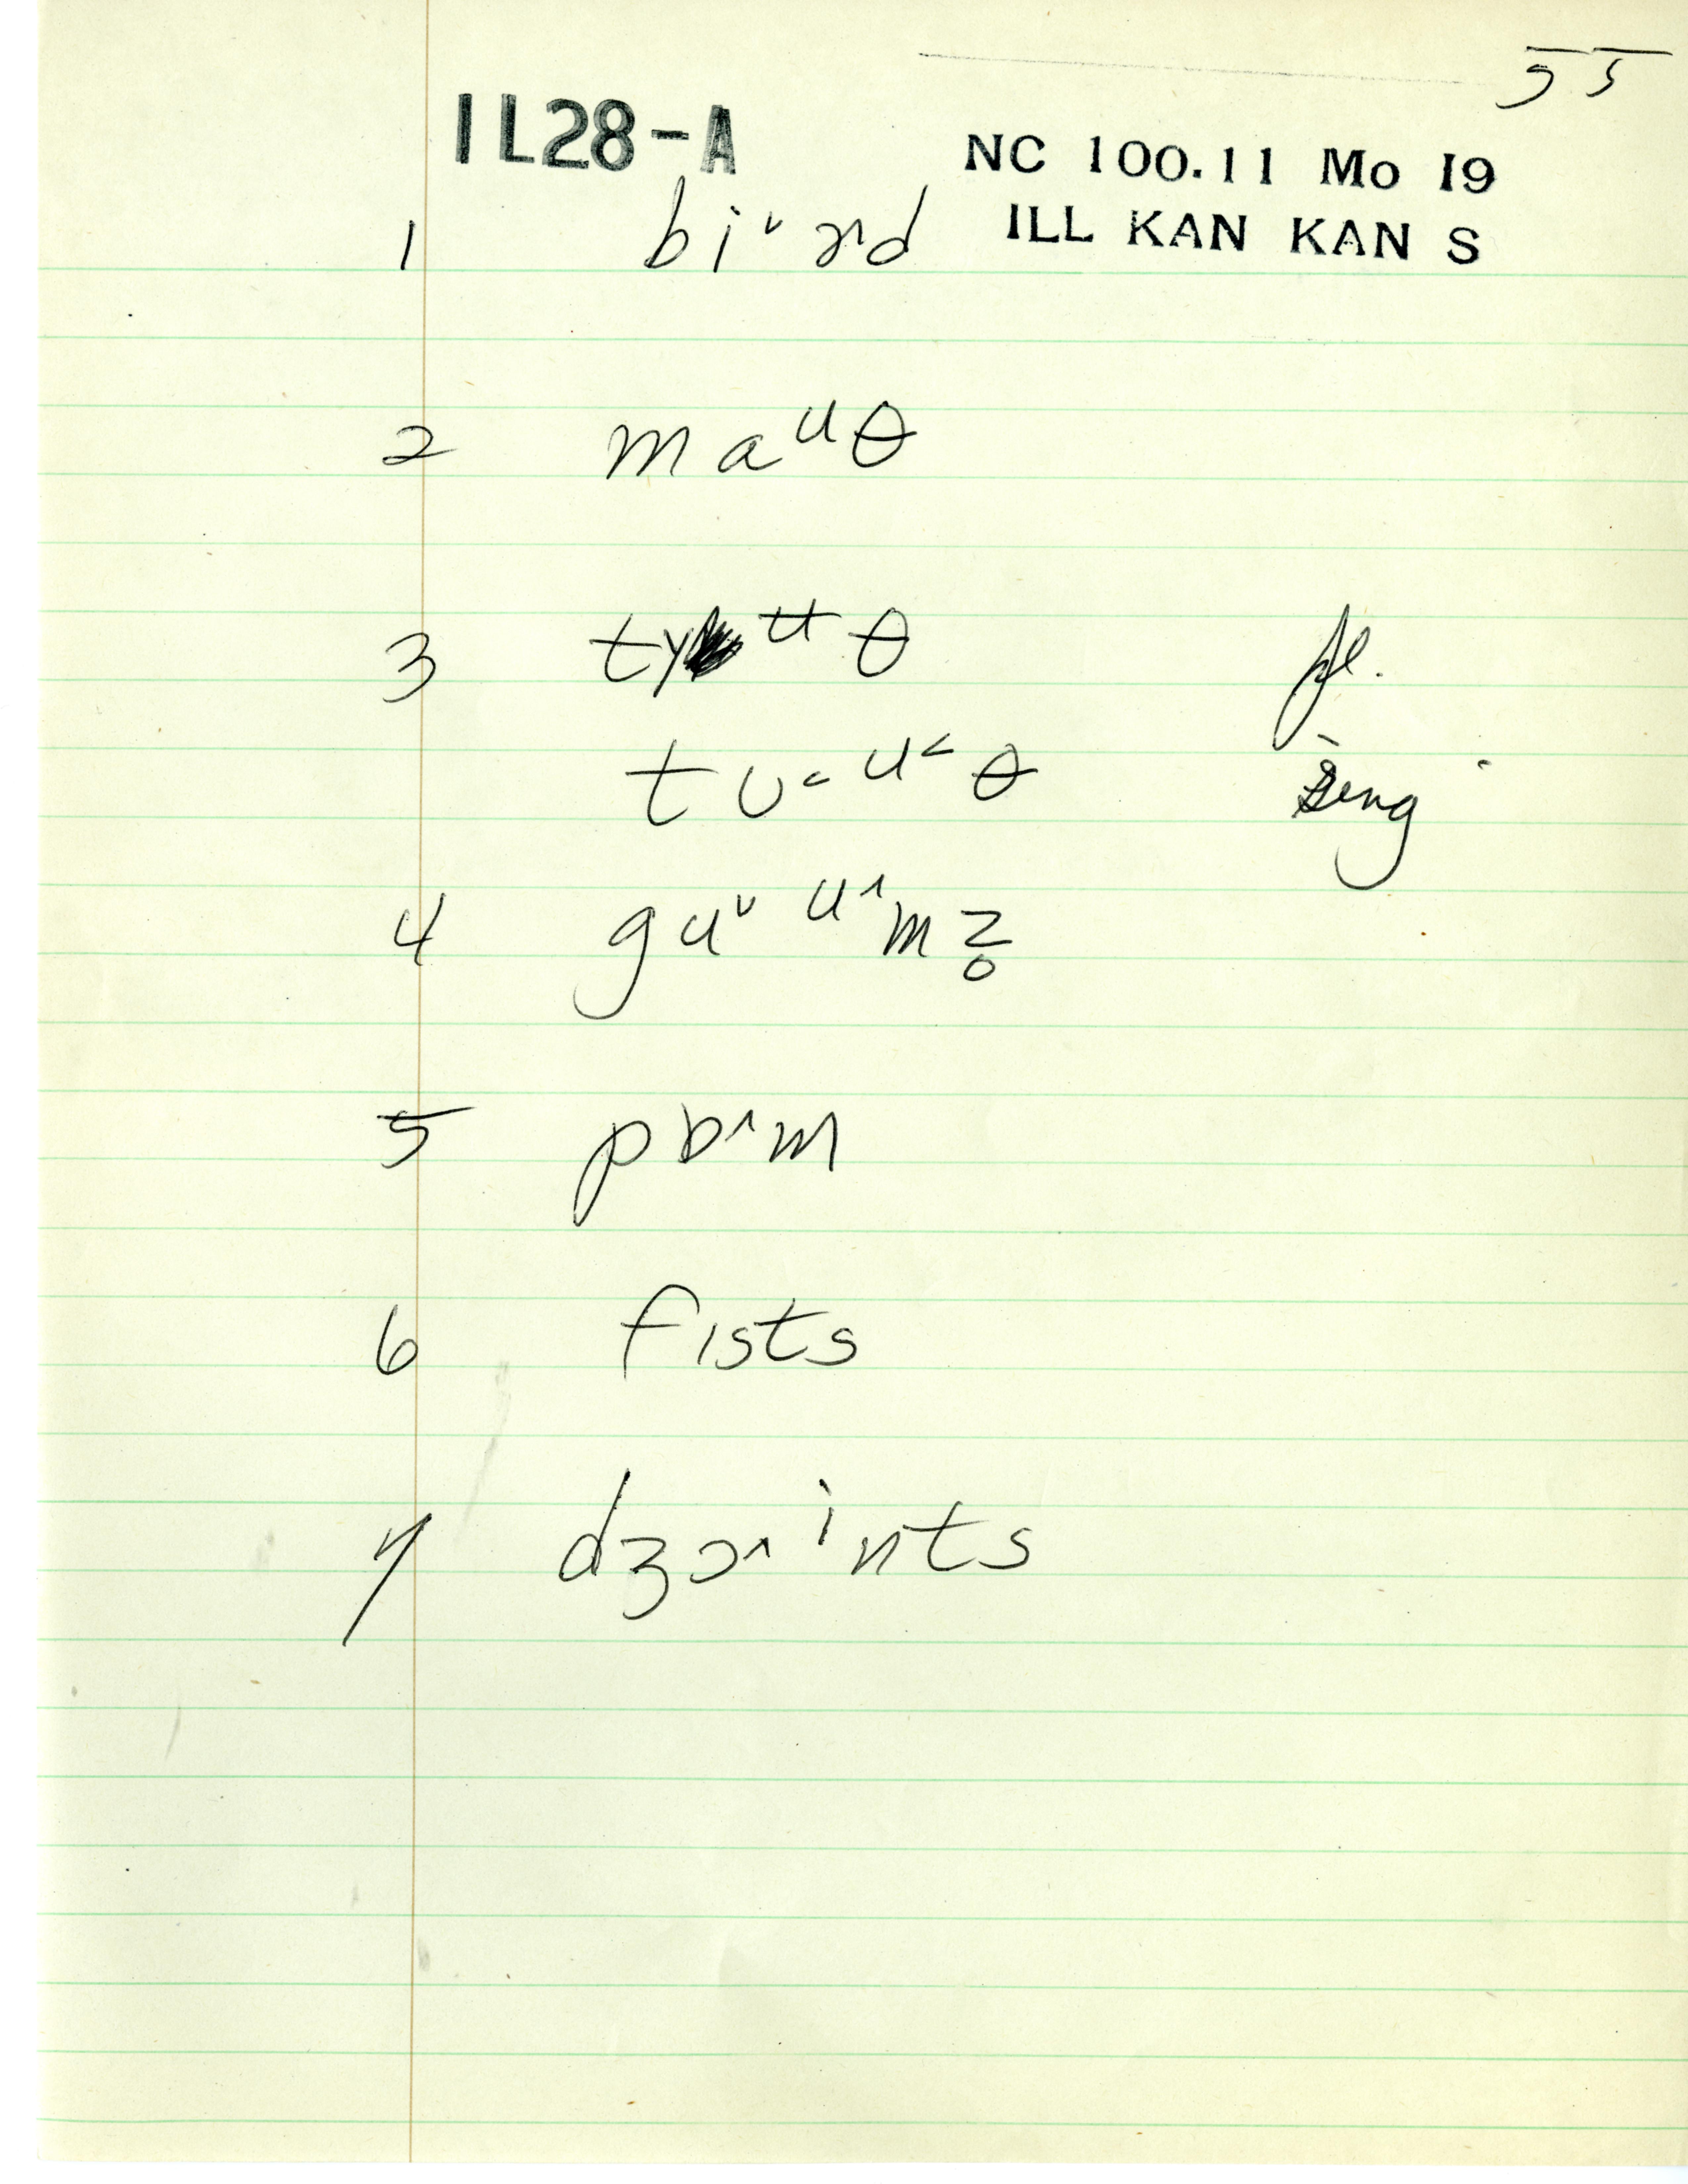 55
IL28-A
NC 100.11 Mo I9
ILL KAN KAN S
1 biˇɚ^d
2 maᶷθ
3 tyᵾθ pl.
tʊ˂ᵘ˂θ sing
4 guˇᵘ^mz̥
5 pɒ^m
6 fɪsts
7 dʒɔ^ⁱnts